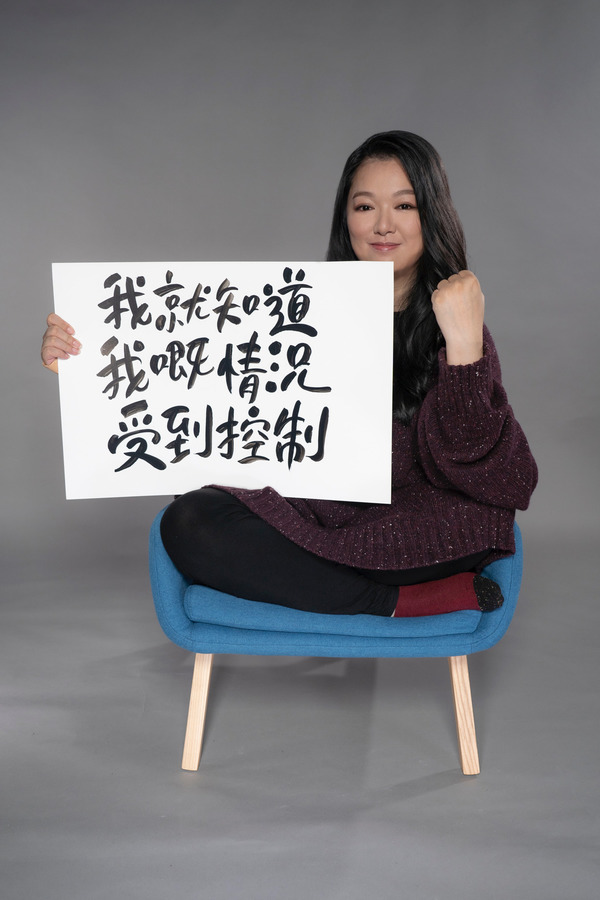 我就知道
我嘅情況
受到控制